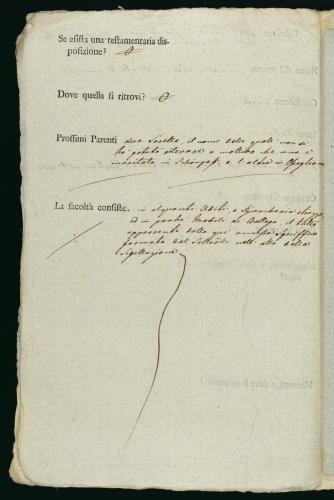 Se esista una testamentaria dis-
posizione?
Dove quella si ritrovi?
Prossimi Parenti due Sorelle, il nome delle quali non si
ha potuto rilevare a motivo che una è
maritata in e l'altra in
La facoltà consiste. in alquanti Abiti, e Biancheria
ed in poche Mobile di Bottega, il tutto
apparente dalla qui annessa Specifica
formata dal Sottoscritto nell' atto della
Sigillazione